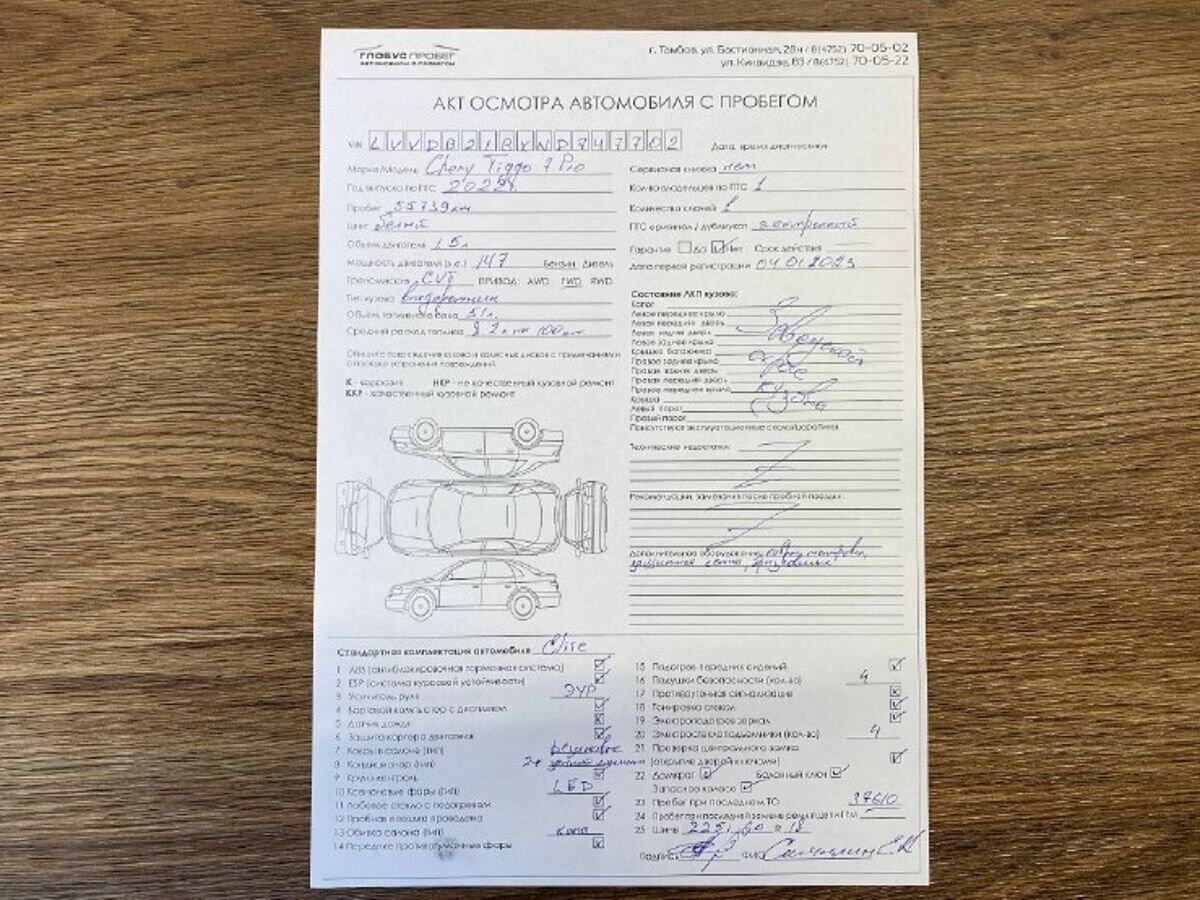 ГЛОБУС ПРОБЕГ
АВТОМОБИЛИ С ПРОБЕГОМ
г. Тамбов, ул. Бастионная, 28н / 8(4752) 70-05-02
ул. Киквидзе, 83 / 8(4752) 70-05-22
АКТ ОСМОТРА АВТОМОБИЛЯ С ПРОБЕГОМ
VIN LVVDB21BXND747702
Дата, время диагностики
Марка/Модель Chery Tiggo 7 Pro
Год выпуска по ПТС 2022г.
Пробег 55739 км
Цвет белый
Объем двигателя 1.5л
Мощность двигателя (л.с.) 147 Бензин Дизель
Трансмиссия CVT ПРИВОД: AWD FWD RWD
Тип кузова внедорожник
Объем топливного бака 51л.
Средний расход топлива 8.2л на 100км
Опишите повреждения кузова и колесных дисков с примечаниями
о порядке устранения повреждений
К - коррозия НКР - не качественный кузовной ремонт
ККР - качественный кузовной ремонт
Сервисная книжка нет
Кол-во владельцев по ПТС 1
Количество ключей 1
ПТС оригинал / дубликат электронный
Гарантия Да Нет Срок действия
Дата первой регистрации 04.01.2023
Состояние ЛКП кузова:
Капот
Левое переднее крыло
Левая передняя дверь
Левая задняя дверь
Левое заднее крыло
Крышка багажника
Правое заднее крыло
Правая задняя дверь
Правая передняя дверь
Правое переднее крыло
Крыша
Левый порог
Правый порог
Заводской
окрас
кузова
Присутствуют эксплуатационные сколы/царапины
Технические недостатки:
Рекомендации, замечания после пробной поездки:
Дополнительное оборудование:
Стандартная комплектация автомобиля Elite
1 ABS (антиблокировочная тормозная система)
2 ESP (система курсовой устойчивости)
3 Усилитель руля ЭУР
4 Бортовой компьютер с дисплеем
5 Датчик дождя
6 Защита картера двигателя
7 Ковры в салоне (тип) резиновые
8 Кондиционер (тип)
9 Круиз-контроль
10 Ксеноновые фары (тип) LED
11 Лобовое стекло с подогревом
12 Пробная поездка проведена
13 Обивка салона (тип) кожа
14 Передние противотуманные фары
15 Подогрев передних сидений
16 Подушки безопасности (кол-во) 4
17 Противоугонная сигнализация
18 Тонировка стекол
19 Электроподогрев зеркал
20 Электростеклоподъемники (кол-во) 4
21 Проверка центрального замка
(открытие дверей ключами)
22 Домкрат Балонный ключ
Запасное колесо
23 Пробег при последнем ТО 37610
24 Пробег при последней замене ремня/цепи ГРМ
25 Шины 225/60 R 18
Подпись ФИО